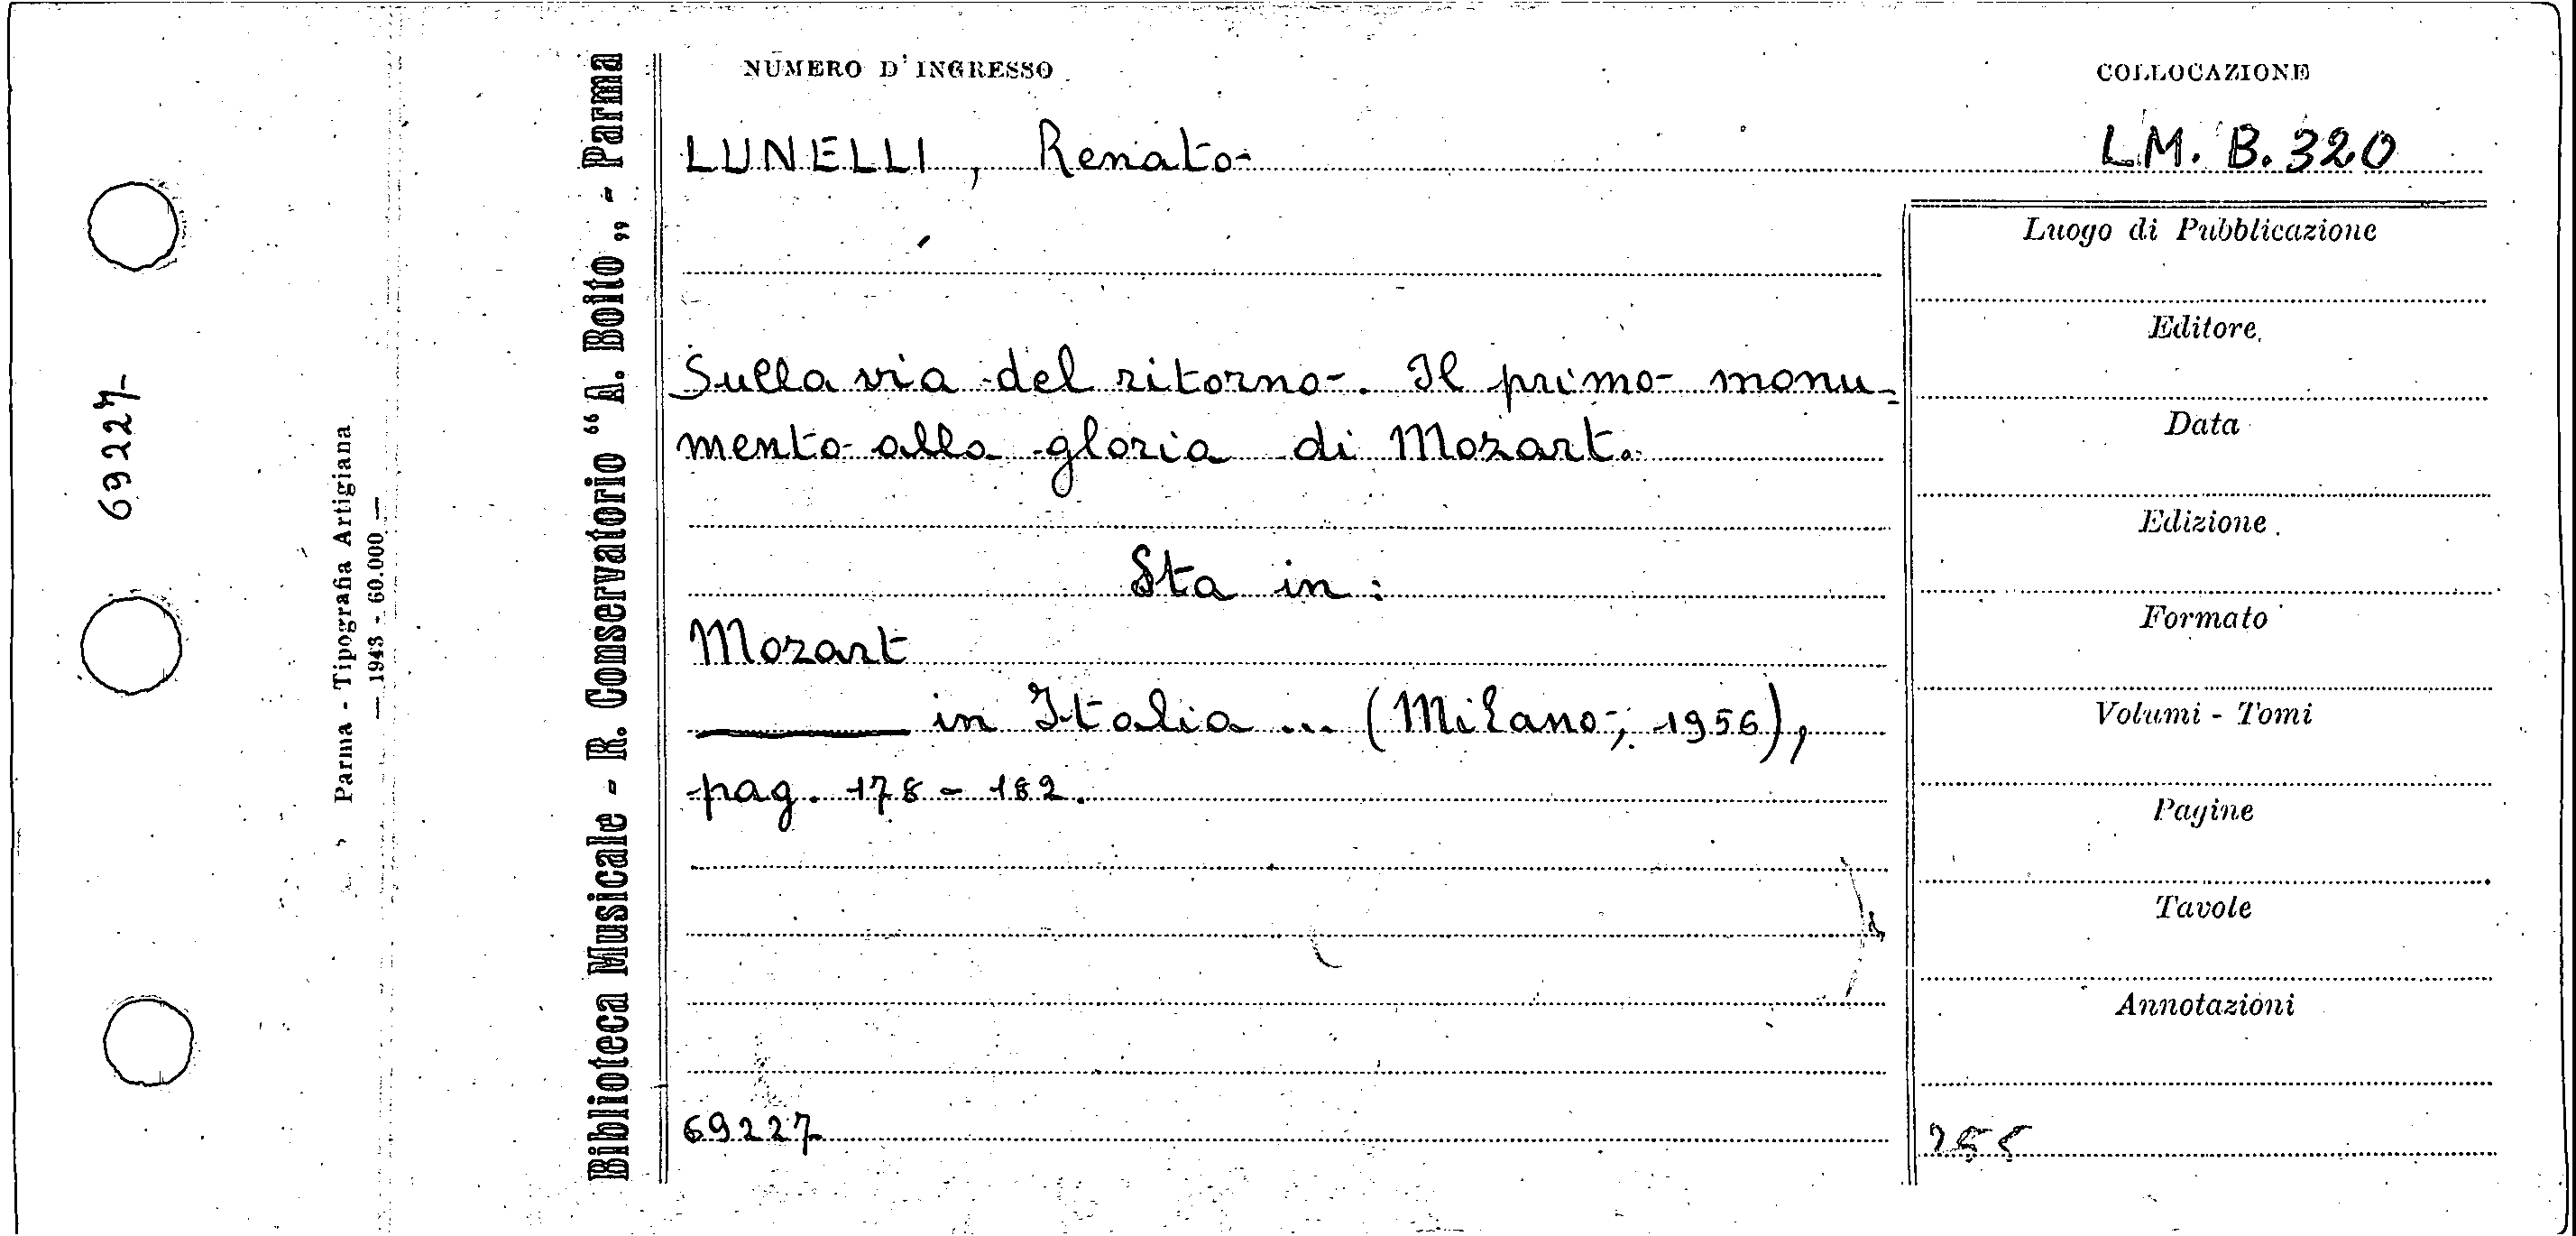 NUMERO D'INGRESSO
COLLOCAZIONE
LUNELLI, Renato
LM. B. 320
Sulla via del ritorno. Il primo monu-
mento alla gloria di Mozart.
Sta in:
Mozart
in Italia ... (Milano, 1956),
pag. 178 - 182.
69227
Luogo di Pubblicazione
Editore
Data
Edizione
Formato
Volumi - Tomi
Pagine
Tavole
Annotazioni
Biblioteca Musicale - R. Conservatorio “A. Boito„ - Parma
Parma - Tipografia Artigiana
— 1943 - 60.000 —
69227